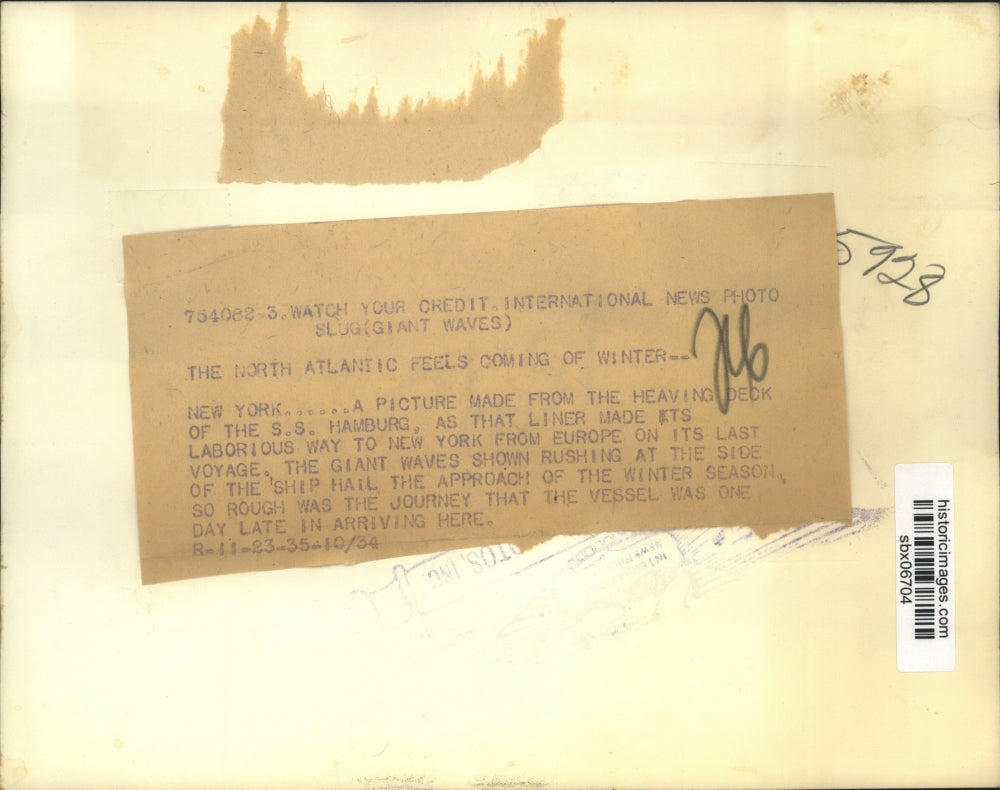 754082-3.WATCH YOUR CREDIT.INTERNATIONAL NEWS PHOTO
SLUG(GIANT WAVES)
THE NORTH ATLANTIC FEELS COMING OF WINTER--
NEW YORK.......A PICTURE MADE FROM THE HEAVING DECK
OF THE S.S. HAMBURG, AS THAT LINER MADE ITS
LABORIOUS WAY TO NEW YORK FROM EUROPE ON ITS LAST
VOYAGE. THE GIANT WAVES SHOWN RUSHING AT THE SIDE
OF THE SHIP HAIL THE APPROACH OF THE WINTER SEASON.
SO ROUGH WAS THE JOURNEY THAT THE VESSEL WAS ONE
DAY LATE IN ARRIVING HERE.
R-11-23-35-10/34
5928
historicimages.com
sbx06704